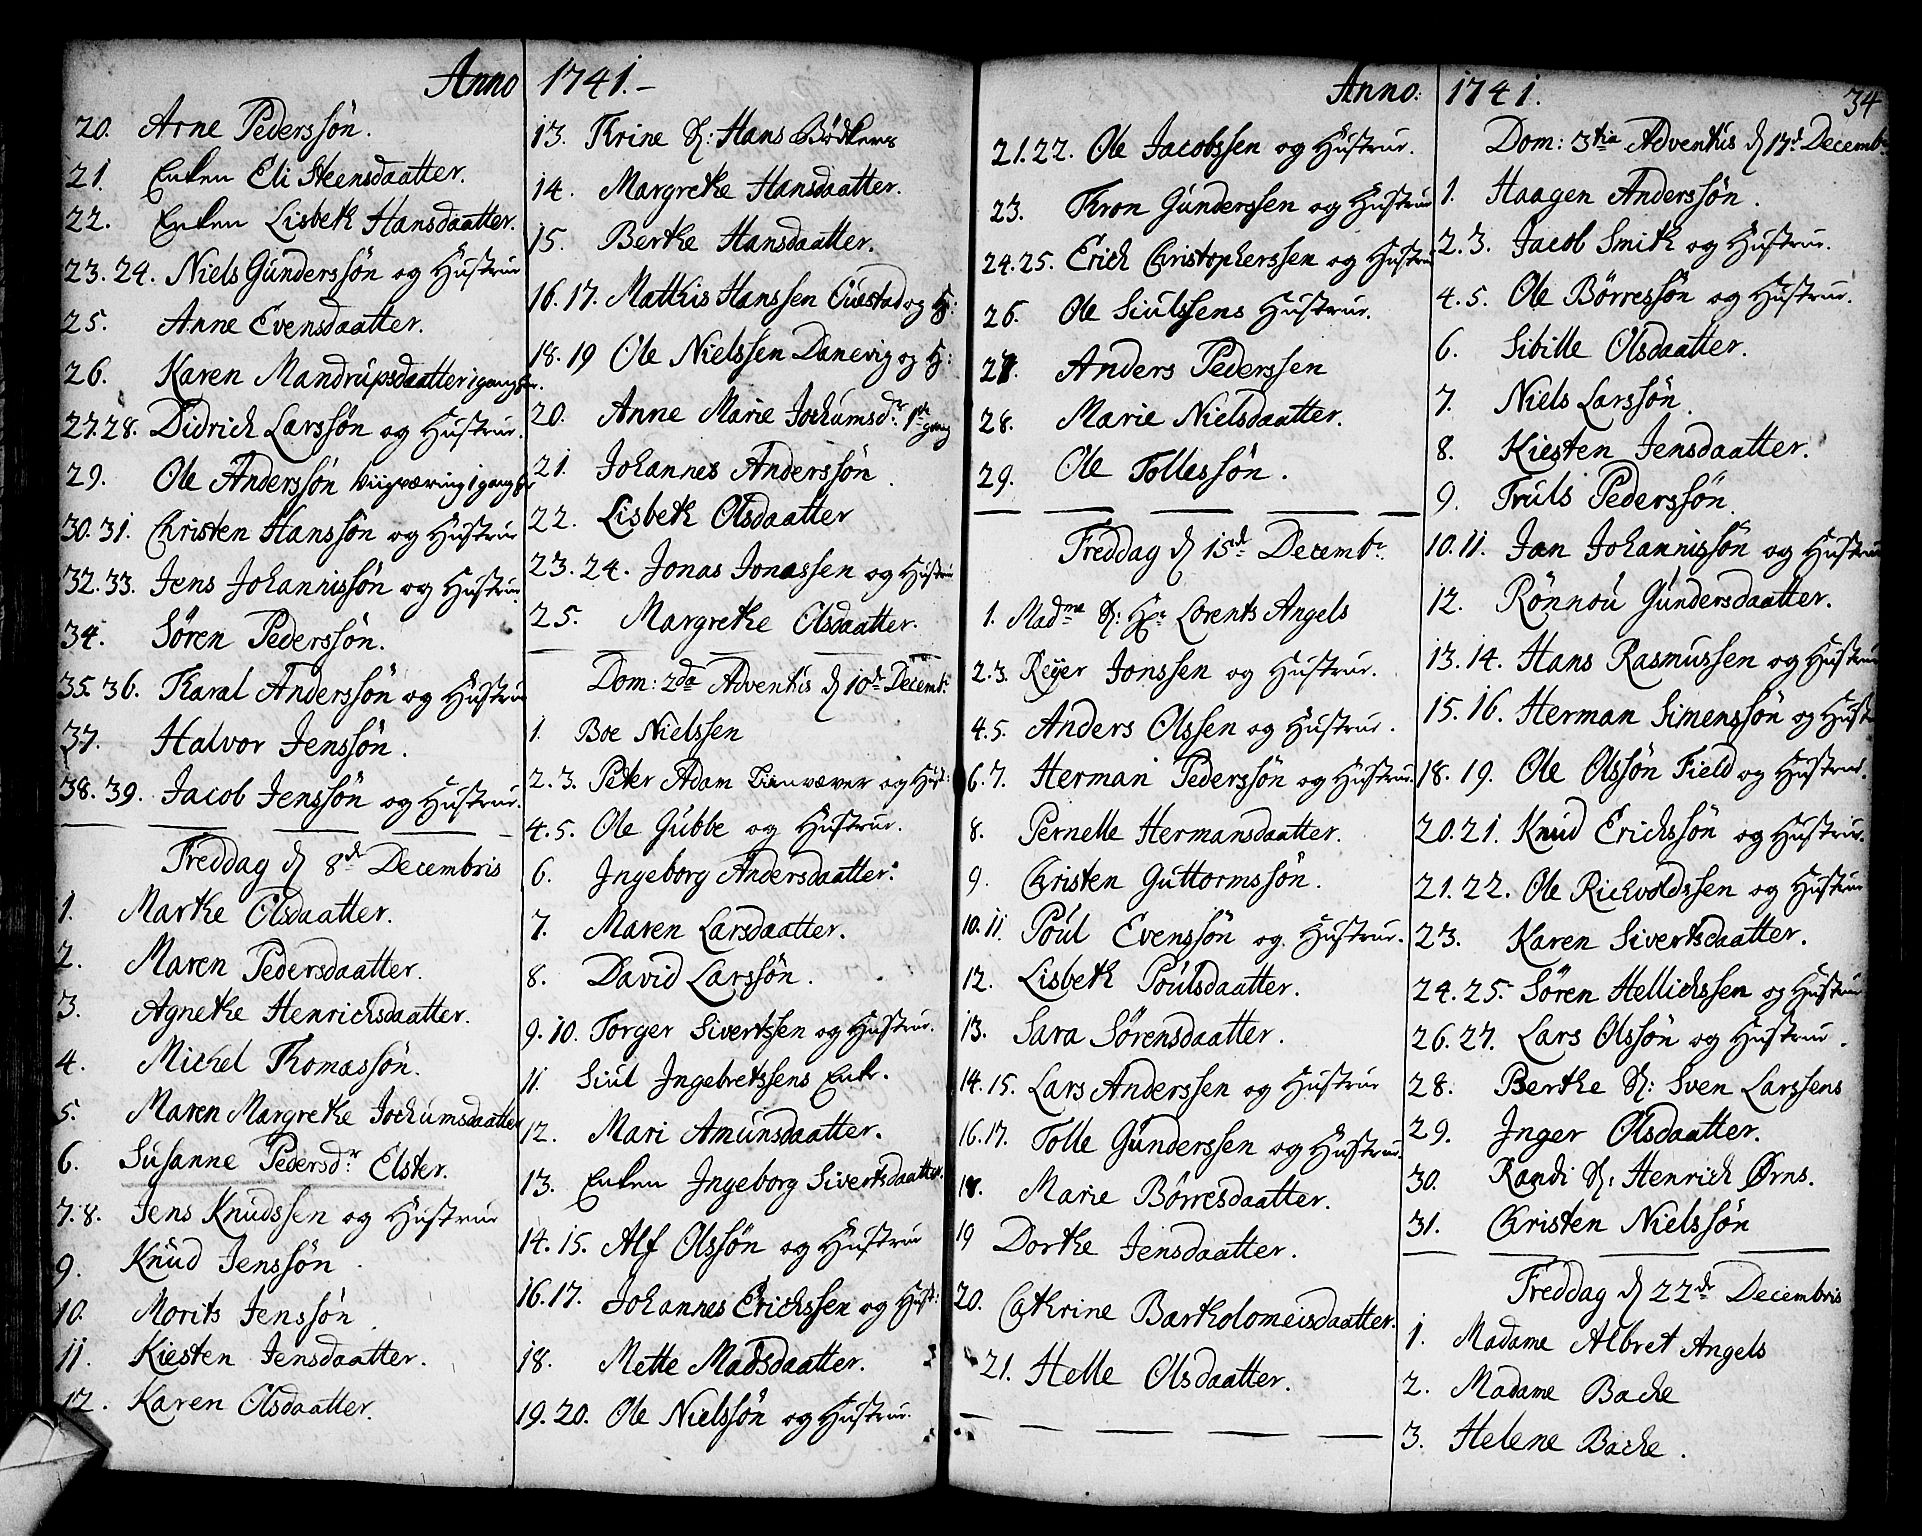 Anno 1741.
20. Arne Pederssøn.
21. Enken Eli Steensdaatter.
22. Enken Lisbeth Hansdaatter.
23. 24. Niels Gunderssøn og Hustrue
25. Anne Evensdaatter.
26. Karen Mandrupsdaatter 1 gang
27. 28. Didrich Larssøn og Hustrue.
29. Ole Anderssøn 1 gang
30. 31. Christen Hanssøn og Hustrue
32. 33. Jens Johannissøn og Hustrue.
34. Søren Pederssøn.
35. 36. Karal Anderssøn og Hustrue
37. Halvor Jenssøn.
38. 39. Jacob Jenssøn og Hustrue.
Freddag d 8de Decembris
1. Marthe Olsdaatter.
2. Maren Pedersdaatter.
3. Agnethe Henrichsdaatter.
4. Michel Thomassøn.
5. Maren Margrethe Jochumsdaatter
6. Susanne Pedersdr Elster.
7. 8. Jens Knudssen og Hustrue
9. Knud Jenssøn
10. Morits Jenssøn
11. Kiesten Jensdaatter.
12. Karen Olsdaatter.
13. Thrine S: Hans Bødkers
14. Margrethe Hansdaatter.
15. Berthe Hansdaatter.
16. 17. Matthis Hanssen Questad og H:
18. 19 Ole Nielssen Danevig og H:
20. Anne Marie Jochumsdr. 1ste gang
21. Johannes Anderssøn.
22. Lisbeth Olsdaatter
23. 24. Jonas Jonassen og Hustrue
25. Margrethe Olsdaatter.
Dom: 2da Adventis d 10de Decemb:
1. Boe Nielssen
2. 3. Peter Adam Linvæver og Hust:
4. 5. Ole Gubbe og Hustrue.
6. Ingeborg Andersdaatter.
7. Maren Larsdaatter.
8. David Larssøn.
9. 10. Torger Sivertssen og Hustrue.
11. Siul Ingebretssens Enke.
12. Mari Amunsdaatter.
13. Enken Ingeborg Sivertsdaatter.
14. 15. Alf Olssøn og Hustrue
16. 17. Johannes Erichssen og Hust:
18. Mette Madsdaatter.
19. 20. Ole Nielssøn og Hustrue.
Anno: 1741.
34
21. 22. Ole Jacobssen og Hustrue.
23. Thron Gunderssen og Hustrue
24. 25. Erich Christopherssen og Hustrue
26. Ole Siulssens Hustrue.
27. Anders Pederssen
28. Marie Nielsdaatter.
29. Ole Tollessøn.
Freddag d 15de Decembr.
1. Madme S: Hr Lorents Angels
2. 3. Reyer Jonssen og Hustrue.
4. 5. Anders Olssen og Hustrue.
6. 7. Herman Pederssøn og Hustrue.
8. Pernelle Hermansdaatter.
9. Christen Guttormssøn.
10. 11. Poul Evenssøn og Hustrue.
12. Lisbeth Poulsdaatter.
13. Sara Sørensdaatter.
14. 15. Lars Anderssen og Hustrue
16. 17. Tolle Gunderssen og Hustrue.
18. Marie Børresdaatter.
19 Dorthe Jensdaatter.
20. Cathrine Bartholomeisdaatter.
21. Helle Olsdaatter.
Dom: 3tia Adventus d 17de Decemb:
1. Haagen Anderssøn.
2. 3. Jacob Smith og Hustrue.
4. 5. Ole Børressøn og Hustrue.
6. Sibille Olsdaatter.
7. Niels Larssøn.
8. Kiesten Jensdaatter.
9. Truls Pederssøn.
10. 11. Jan Johannissøn og Hustrue
12. Rønnou Gundersdaatter.
13. 14. Hans Rasmussen og Hustrue
15. 16. Herman Simenssøn og Hust
18. 19. Ole Olssøn Field og Hustrue.
20. 21. Knud Erichssøn og Hustrue.
21. 22. Ole Richvoldssen og Hustrue
23. Karen Sivertsdaatter.
24. 25. Søren Hellichssen og Hustrue
26. 27. Lars Olssøn og Hustrue.
28. Berthe S: Sven Larssens
29. Inger Olsdaatter.
30. Randi S: Henrich Ørns.
31. Christen Nielssøn
Freddag d 22de Decembris
1. Madame Albret Angels
2. Madame Bache
3. Helene Bache.